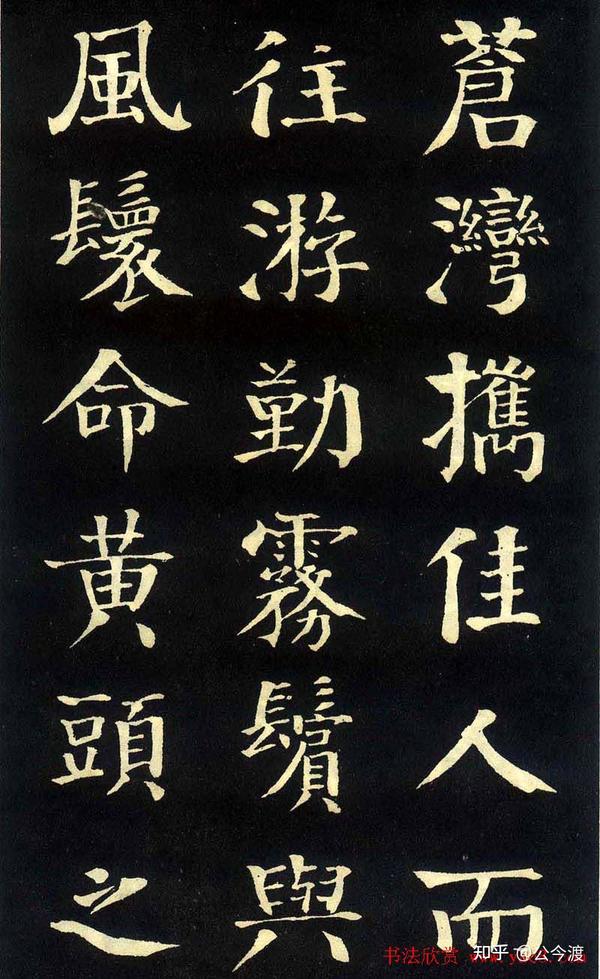 蒼灣攜佳人而
往游勤霧鬢與
風鬟命黄頭之
书法欣赏
知乎 @公今渡